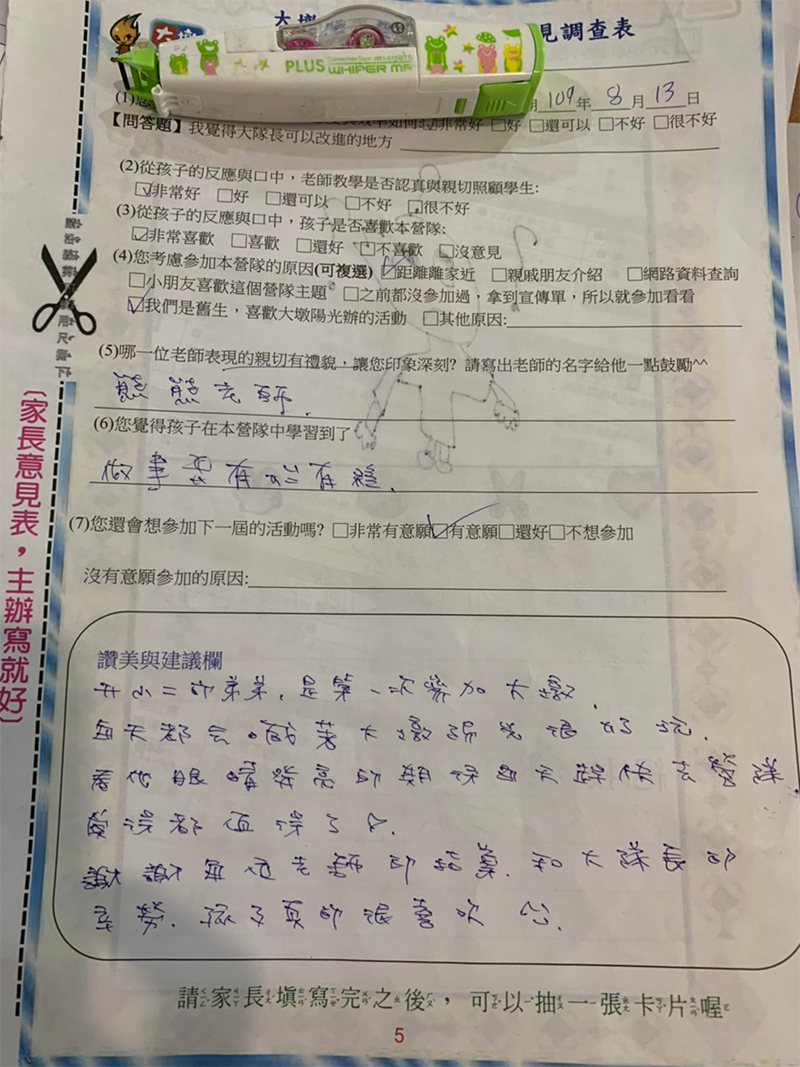 大墩
見調查表
PLUS WHIPER MR
(1)
月109年8月13日
☑非常好 □好 □還可以 □不好 □很不好
【問答題】我覺得大隊長可以改進的地方
(2)從孩子的反應與口中，老師教學是否認真與親切照顧學生:
☑非常好 □好 □還可以 □不好 □很不好
(3)從孩子的反應與口中，孩子是否喜歡本營隊:
☑非常喜歡 □喜歡 □還好 □不喜歡 □沒意見
(4)您考慮參加本營隊的原因(可複選) ☑距離離家近 □親戚朋友介紹 □網路資料查詢
□小朋友喜歡這個營隊主題 □之前都沒參加過，拿到宣傳單，所以就參加看看
☑我們是舊生，喜歡大墩陽光辦的活動 □其他原因:
(5)哪一位老師表現的親切有禮貌，讓您印象深刻? 請寫出老師的名字給他一點鼓勵^^
熊熊老師.
(6)您覺得孩子在本營隊中學習到了
做事要有始有終.
(7)您還會想參加下一屆的活動嗎? □非常有意願☑有意願□還好□不想參加
沒有意願參加的原因:
讚美與建議欄
升小二的弟弟, 是第一次參加大墩.
每天都會喊著大墩陽光很好玩.
看他眼睛發亮的期待每天趕快去營隊,
覺得都值得了♡.
謝謝每位老師的指導. 和大隊長的
辛勞. 孩子真的很喜歡
請家長填寫完之後，可以抽一張卡片喔
5
〔家長意見表，主辦寫就好〕